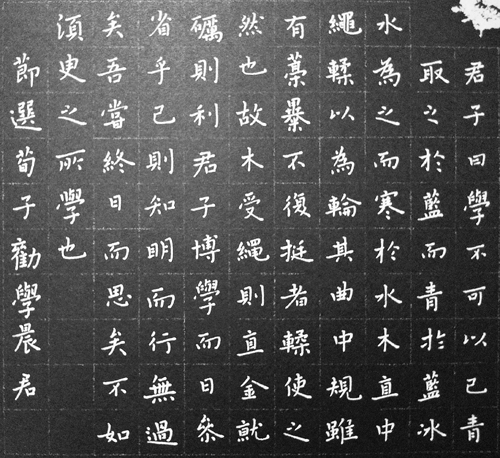 君子曰學不可以已青
取之於藍而青於藍冰
水為之而寒於水木直中
繩輮以為輪其曲中規雖
有藁暴不復挺者輮使之
然也故木受繩則直金就
礪則利君子博學而日參
省乎己則知明而行無過
矣吾嘗終日而思矣不如
須臾之所學也
節選荀子勸學晨君